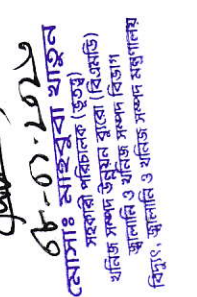 মোসাঃ মাহবুবা খাতুন
সহকারী পরিচালক (ভূতত্ত্ব)
খনিজ সম্পদ উন্নয়ন ব্যুরো (বিএমডি)
জ্বালানি ও খনিজ সম্পদ বিভাগ
বিদ্যুৎ, জ্বালানি ও খনিজ সম্পদ মন্ত্রণালয়